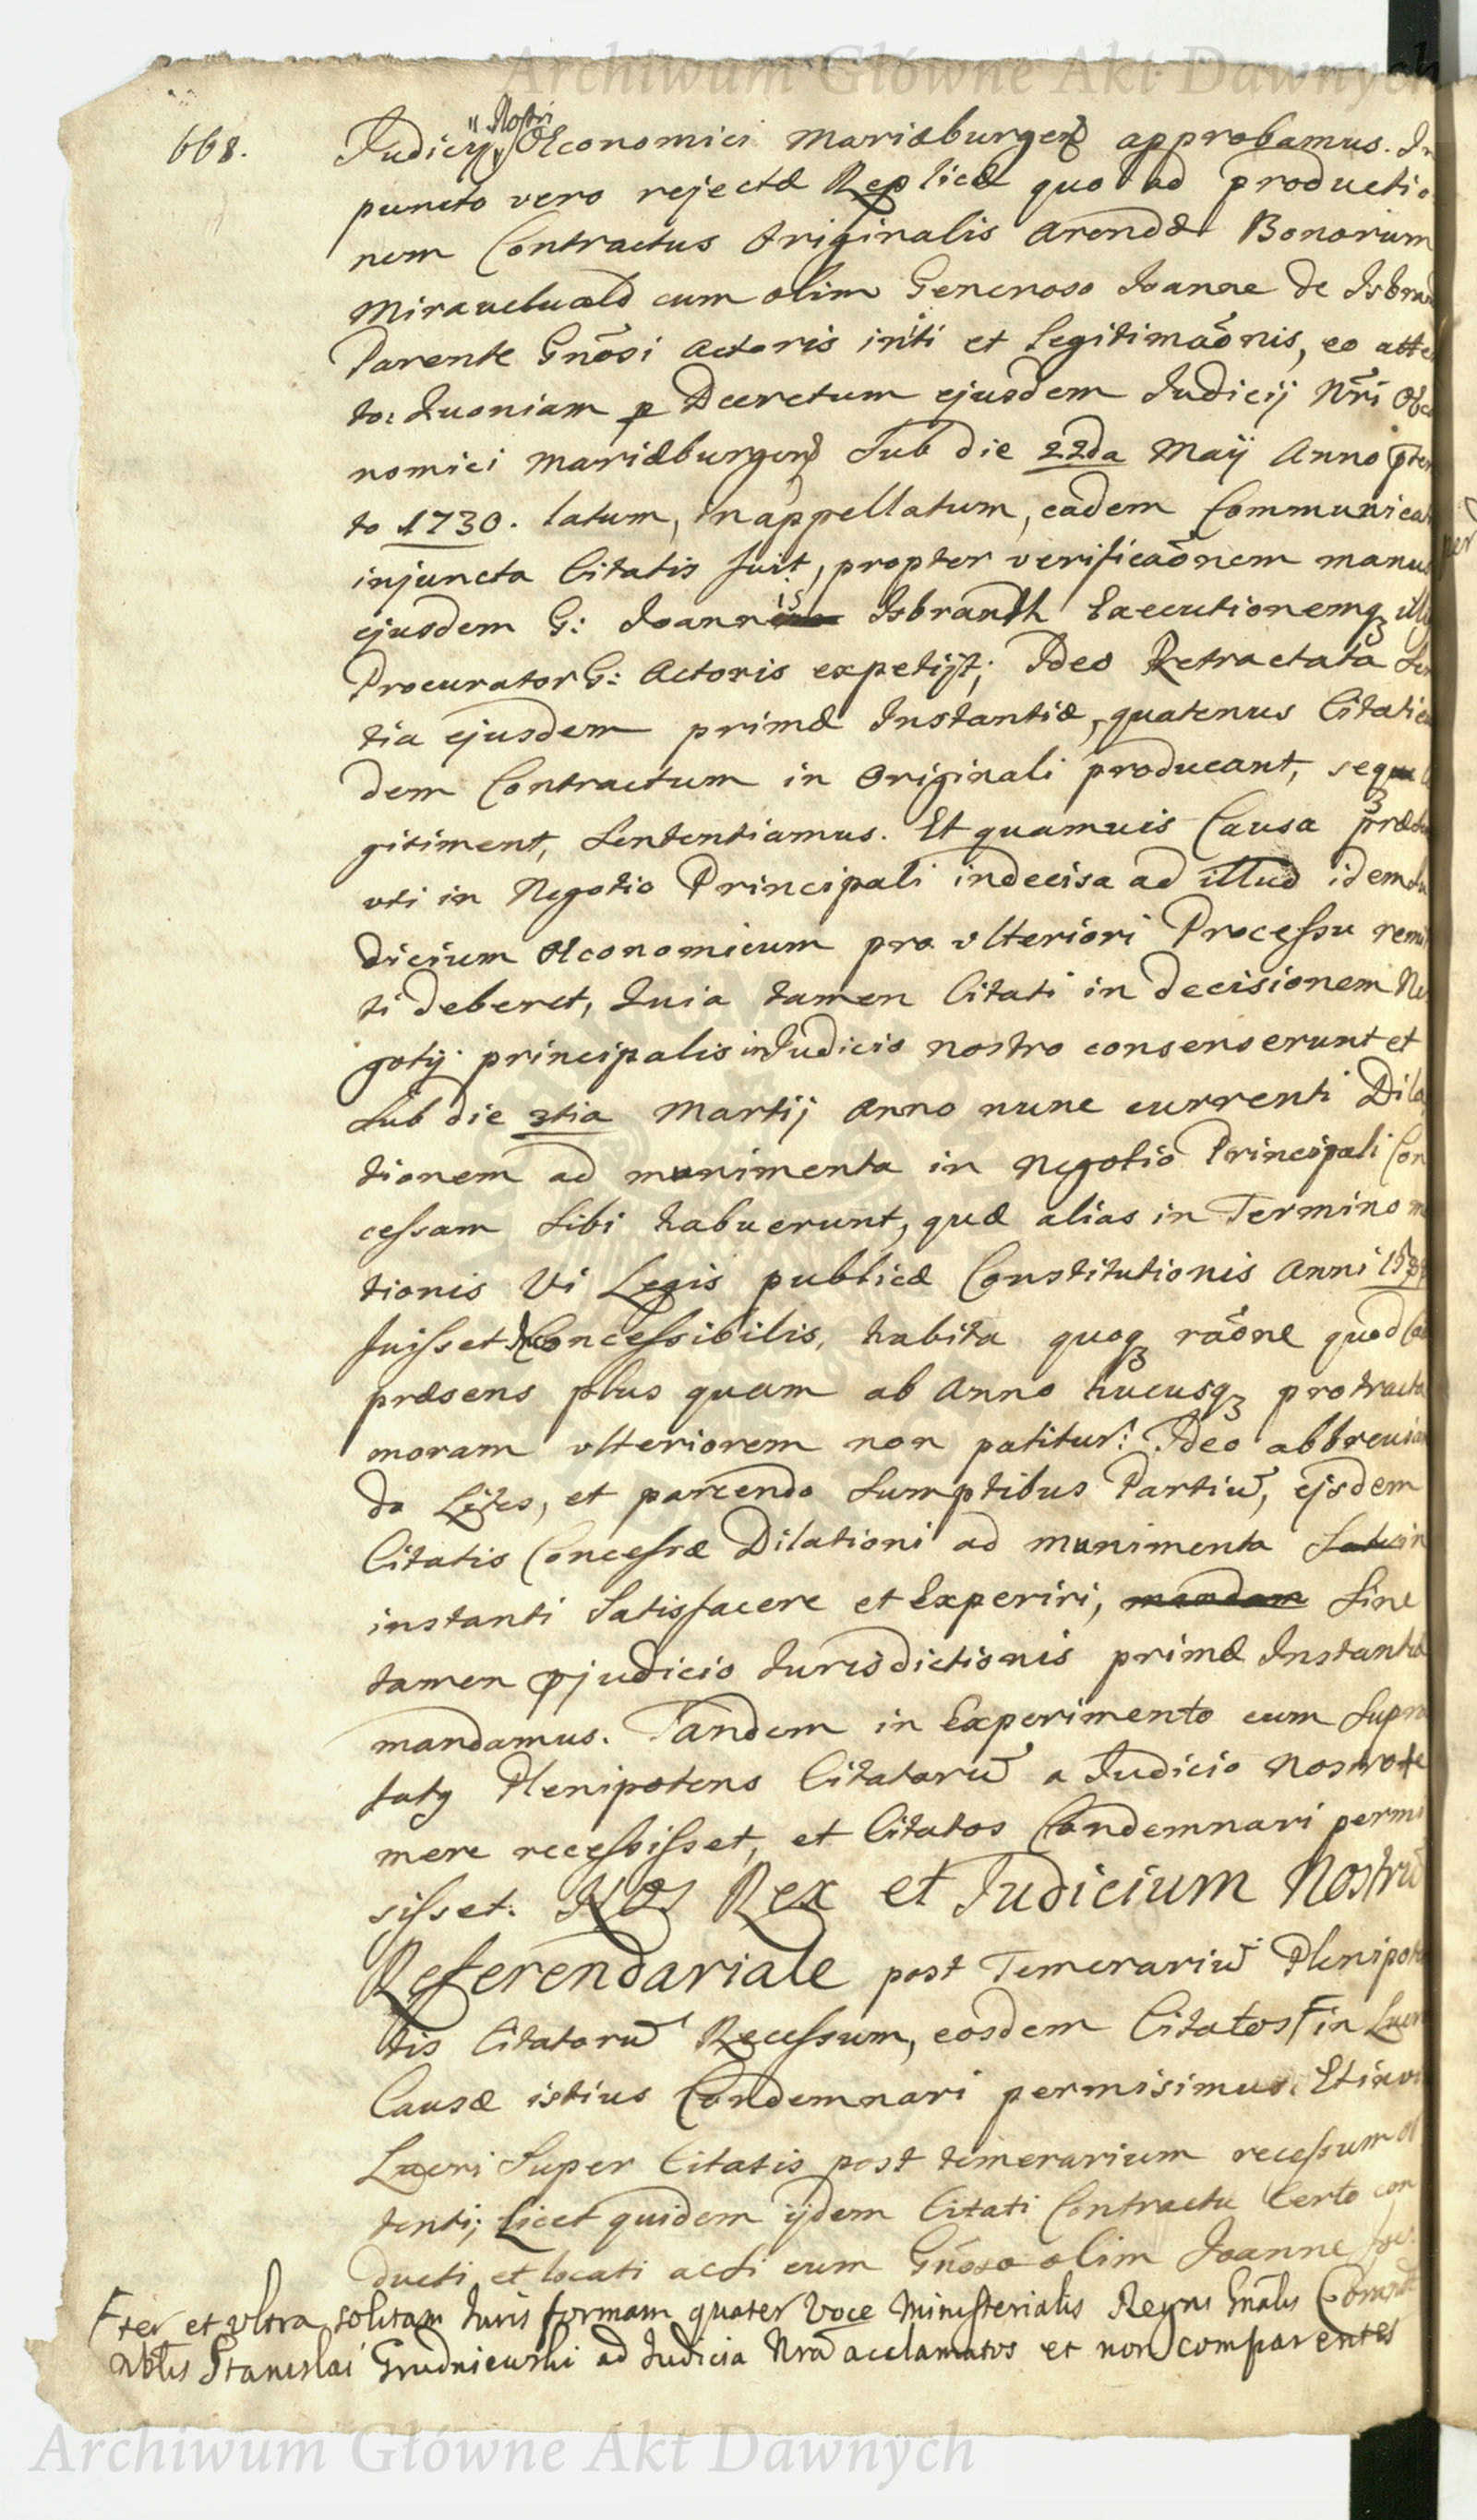 Archiwum Główne Akt Dawnych
668.
Nostri
Judicij Œconomici Mariæburgen approbamus. In
puncto vero rejectæ Replicæ quo ad productio
nem Contractus Originalis Arendæ Bonorum
cum olim Generoso Joanne de Isbran
Parente Gnõsi Actoris initi et Legitimaõnis, eo atte
to: Quoniam p Decretum ejusdem Judicij Nri Œco
nomici Mariæburgen Sub die 22da Maij Anno præter
to 1730. latum, inappellatum, eadem Communicat
injuncta Citatis fuit, propter verificaõnem manus
ejusdem G: Joannis Isbrandt Executionemq
Procurator G: Actoris expetijt; Ideo Retractata Sen
tia ejusdem primæ Instantiæ, quatenus Citati
dem Contractum in Originali producant, seque le
gitiment, Sententiamus. Et quamuis Causa præ
uti in Negotio Principali indecisa ad illud idem Ju
dicium Œconomicum pro ulteriori Processu remit
ti deberet, Quia tamen Citati in decisionem Ne
gotij principalis in Judicio nostro consenserunt et
Sub die 3tia Martij Anno nunc currenti Dila
tionem ad munimenta in Negotio Principali Con
cessam Sibi habuerunt, quæ alias in Termino
tionis Vi Legis publicæ Constitutionis Anni
fuisset Concessibilis, habita quoq raõne quod Ca
præsens plus quam ab Anno hucusq protracta
moram ulteriorem non patitur: Ideo abbreuian
do Lites, et parcendo Sumptibus Partiũ, ijsdem
Citatis Concessæ Dilationi ad munimenta in
instanti Satisfacere et Experiri, mandam Sine
tamen pjudicio Jurisdictionis primæ Instantiæ
mandamus. Tandem in Experimento cum Supra
fatg Plenipotens Citatorũ a Judicio nostro te
mere recessisset, et Citatos Condemnari permi
sisset. Nos Rex et Judicium Nostrũ
Referendariale post Temerariũ Plenipoten
tis Citatorũ Recessum, eosdem Citatos F in Lucro
Causæ istius Condemnari permisimus. Et in vi
Lucri Super Citatis post temerarium recessum ob
tenti; Licet quidem ijdem Citati Contractu Certo con
ducti et locati acti cum Gnoso olim Joanne
F ter et ultra solitam Juris formam quater Voce Ministerialis Regni Gnalis
Nblis Stanislai Grudniewski ad Judicia Nra acclamatos et non comparentes
Archiwum Główne Akt Dawnych